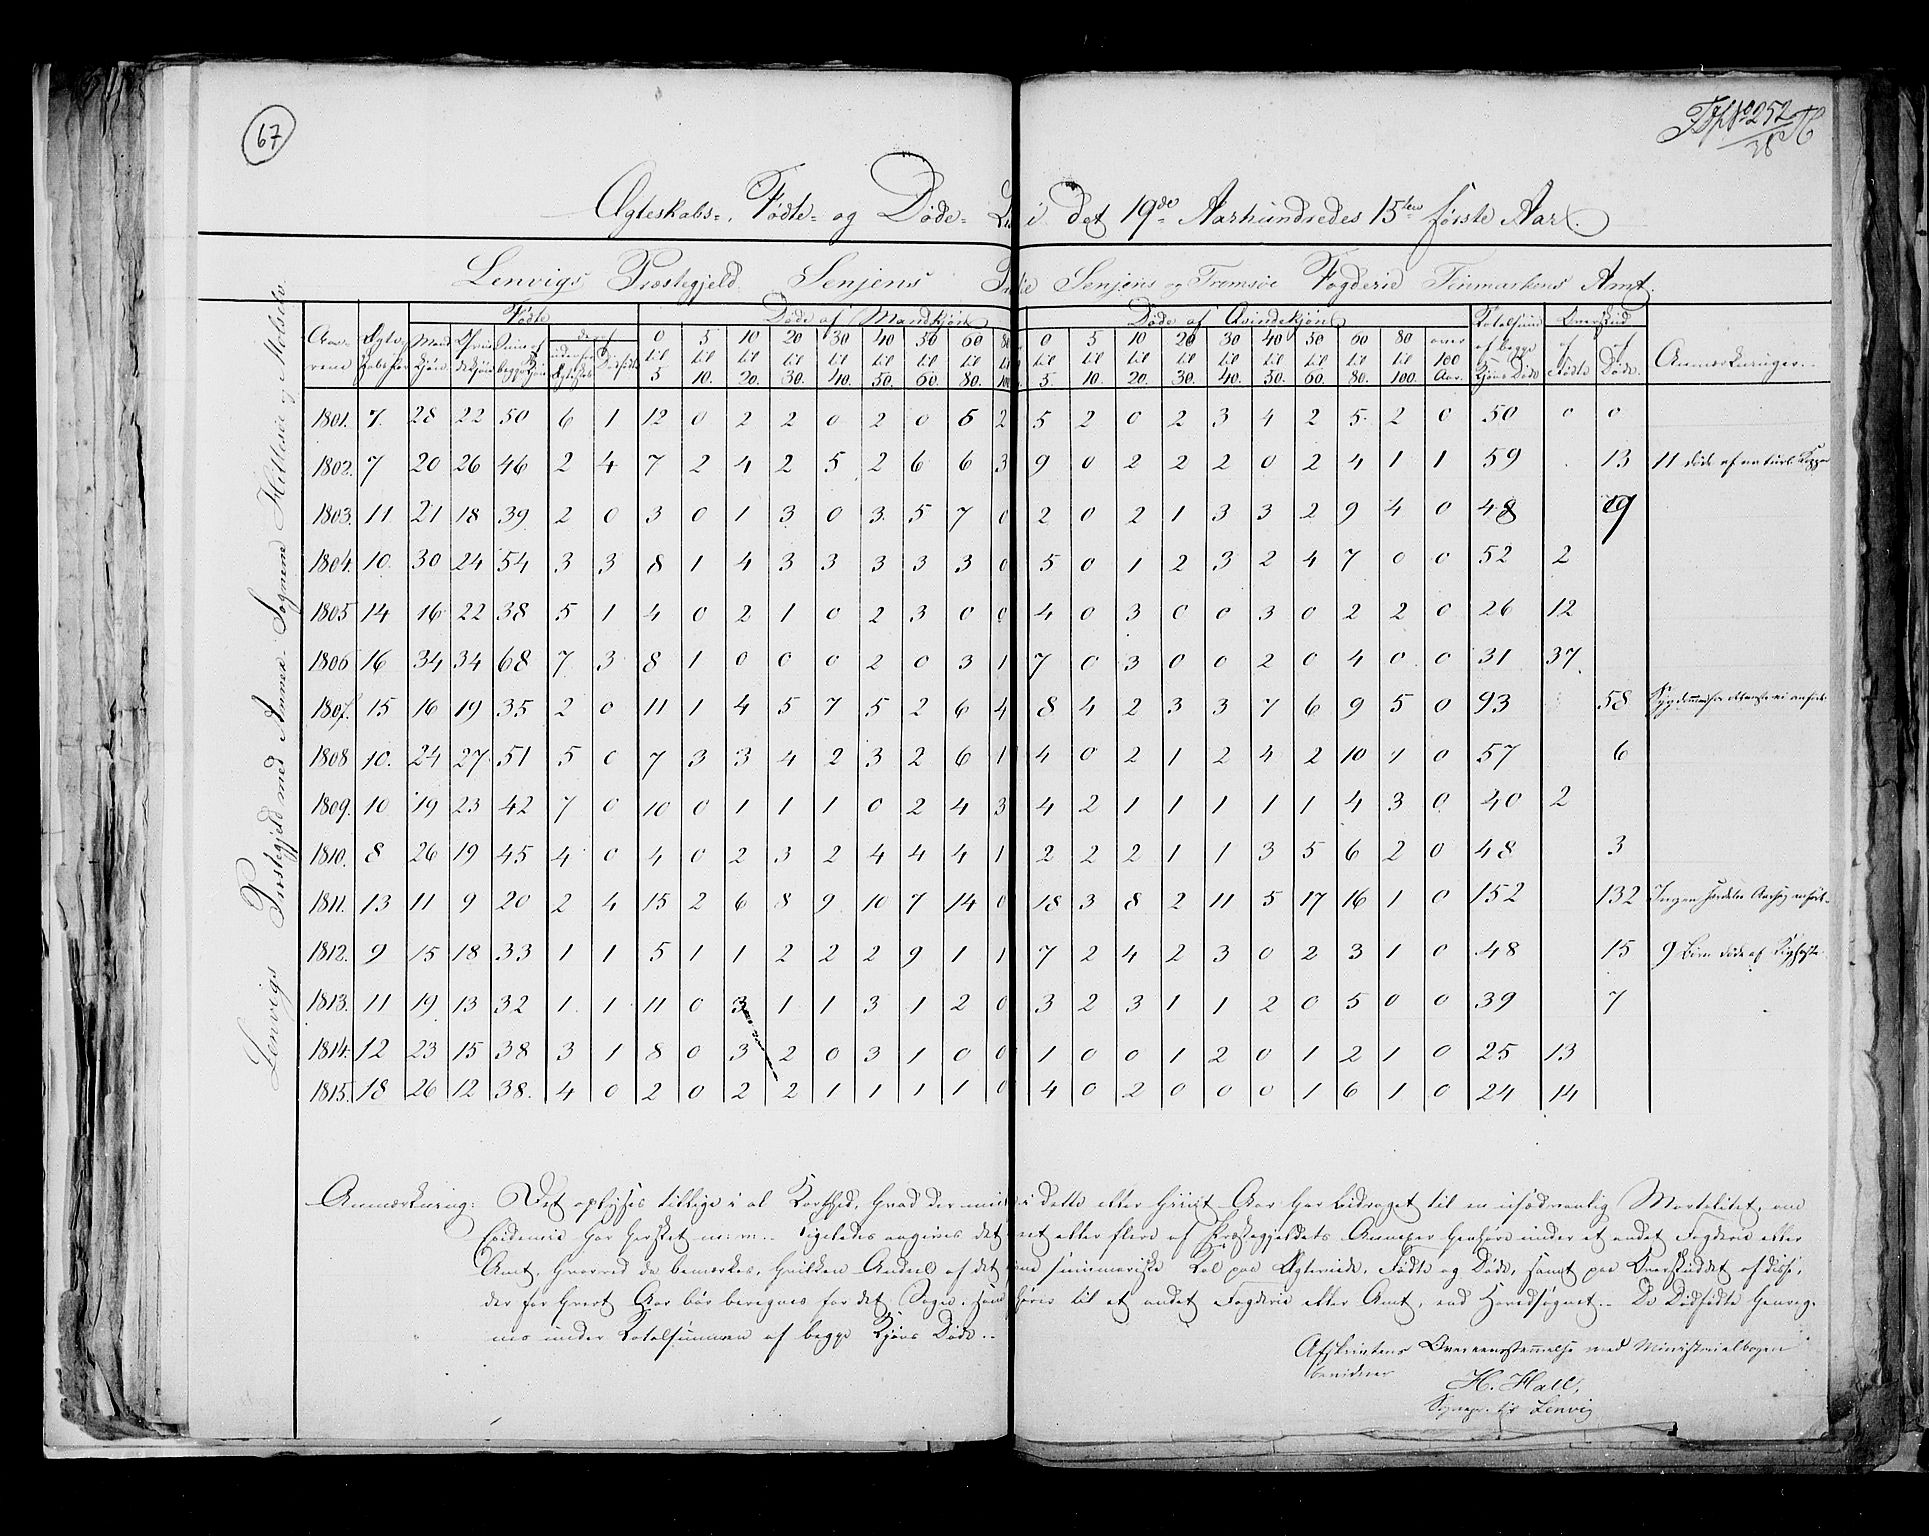 67
No 252
Ægteskabs-, Fødte- og Døde- Li i det 19de Aarhundredes 15ten første Aar.
Lenvigs Præstegjeld Senjens Senjens og Tromsøe Fogderie Finmarkens Amt.
Lenvigs Præstegjeld med Annexe Sognene Hillesøe og Molselv.
Fødte Døde af Mandkjøn Døde af Qvindekjøn Totalsum Overskud
Aar- Ægte- Mand- Qvin- Sum af deraf 0 5 10 20 30 40 50 60 80 0 5 10 20 30 40 50 60 80 over af begge af af Anmærkninger.
rene skaber kjøn dekjøn begge Kjøn uden for Dødfødte til til til til til til til til til til til til til til til til til til 100 Kjøns Døde Fødte Døde.
Ægteskab 5 10. 20. 30. 40. 50. 60. 80. 100 5. 10. 20. 30. 40. 50. 60. 80. 100. Aar.
1801. 7. 28 22 50 6 1 12 0 2 2 0 2 0 5 2 5 2 0 2 3 4 2 5 2 0 50 0 0
1802. 7 20 26 46 2 4 7 2 4 2 5 2 6 6 3 9 0 2 2 2 0 2 4 1 1 59 13 11 døde af naturl. Kopper
1803. 11 21 18 39 2 0 3 0 1 3 0 3 5 7 0 2 0 2 1 3 3 2 9 4 0 48 9
1804. 10. 30 24 54 3 3 8 1 4 3 3 3 3 3 0 5 0 1 2 3 2 4 7 0 0 52 2
1805 14 16 22 38 5 1 4 0 2 1 0 2 3 0 0 4 0 3 0 0 3 0 2 2 0 26 12
1806 16 34 34 68 7 3 8 1 0 0 0 2 0 3 1 7 0 3 0 0 2 0 4 0 0 31 37
1807. 15 16 19 35 2 0 11 1 4 5 7 5 2 6 4 8 4 2 3 3 7 6 9 5 0 93 58
1808 10. 24 27 51 5 0 7 3 3 4 2 3 2 6 1 4 0 2 1 2 4 2 10 1 0 57 6
1809. 10 19 23 42 7 0 10 0 1 1 1 0 2 4 3 4 2 1 1 1 1 1 4 3 0 40 2
1810. 8 26 19 45 4 0 4 0 2 3 2 4 4 4 1 2 2 2 1 1 3 5 6 2 0 48 3
1811. 13 11 9 20 2 4 15 2 6 8 9 10 7 14 0 18 3 8 2 11 5 17 16 1 0 152 132 Ingen særdeles Aarsag anført.
1812. 9 15 18 33 1 1 5 1 1 2 2 2 9 1 1 7 2 4 2 3 0 2 3 1 0 48 15 9 Børn døde af Kighoste
1813. 11 19 13 32 1 1 11 0 3 1 1 3 1 2 0 3 2 3 1 1 2 0 5 0 0 39 7
1814. 12 23 15 38 3 1 8 0 3 2 0 3 1 0 0 1 0 0 1 2 0 1 2 1 0 25 13
1815. 18 26 12 38. 4 0 2 0 2 2 1 1 1 1 0 4 0 2 0 0 0 1 6 1 0 24 14
Anmærkning: Det oplyses tillige i al Korthed, hvad der i dette eller hiint Aar har bidraget til en usædvanlig Mortalitet, om
Epidemie har hersket m: m.. Ligeledes angives det eet eller flere af Præstegjeldets Annexer henhøre under et andet Fogderie eller
Amt, hvorved da bemærkes, hvilken Andeel af det summariske Tal paa Ægteviede, Fødte og Døde, samt paa Overskuddet af disse,
der for hvert Aar bør beregnes for det Sogn, som hører til et andet Fogderie eller Amt, end Hovedsognet.. De Dødfødte henreg-
nes under Totalsummen af begge Kjøns Døde..
Afskriftens Overeensstemmelse med Ministerialbogen
bevidner
H. Hall,
Sognepr. til Lenvig